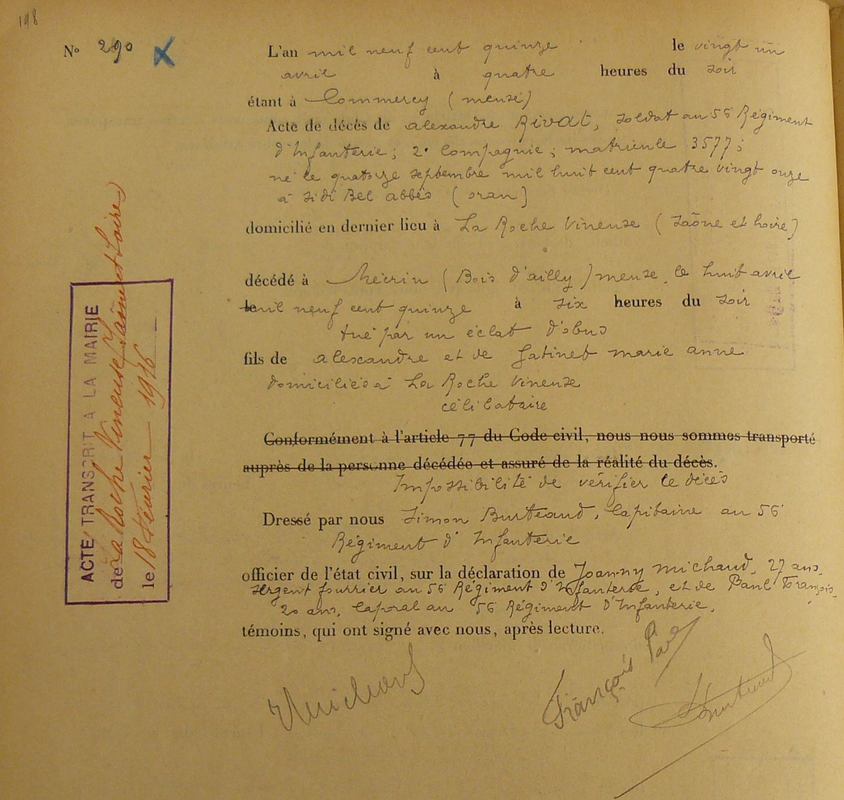 198
N° 290 X
L'an mil neuf cent quinze le vingt un
avril à quatre heures du soir
étant à Commercy (meuse)
Acte de décès de alexandre Rivat, soldat au 56 Régiment
d'Infanterie; 2e Compagnie; matricule 3577;
né le quatorze septembre mil huit cent quatre vingt onze
à Sidi Bel abbès (oran)
domicilié en dernier lieu à La Roche Vineuse (Saône et Loire)
décédé à Mécrin (Bois d'ailly) meuse, le huit avril
le mil neuf cent quinze à six heures du soir
tué par un éclat d'obus
fils de alexandre et de Gatinet marie anne
domiciliés à La Roche Vineuse
célibataire
Conformément à l'article 77 du Code civil, nous nous sommes transporté
auprès de la personne décédée et assuré de la réalité du décès.
Impossibilité de vérifier le décès
Dressé par nous Simon Burteaud, Capitaine au 56
Régiment d'Infanterie
officier de l'état civil, sur la déclaration de Joanny Michaud, 27 ans,
sergent fourrier au 56 Régiment d'Infanterie, et de Paul François,
20 ans, Caporal au 56 Régiment d'Infanterie,
témoins, qui ont signé avec nous, après lecture.
Michaud
François Paul
SBurteaud
ACTE TRANSCRIT A LA MAIRIE
de La Roche Vineuse Saône et Loire
le 18 Février 1916